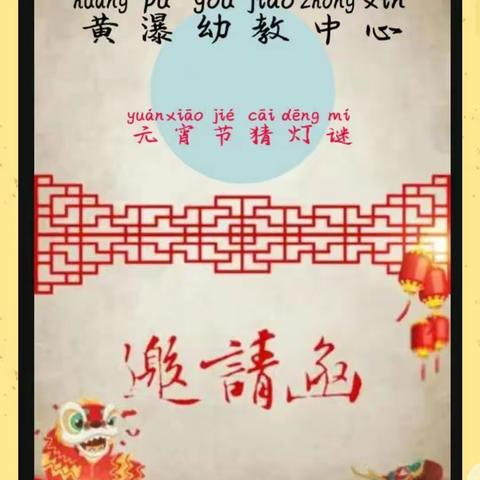 huáng pù yòu jiào zhōng xīn
黄瀑幼教中心
yuánxiāo jié cāi dēng mí
元宵节猜灯谜
邀請函